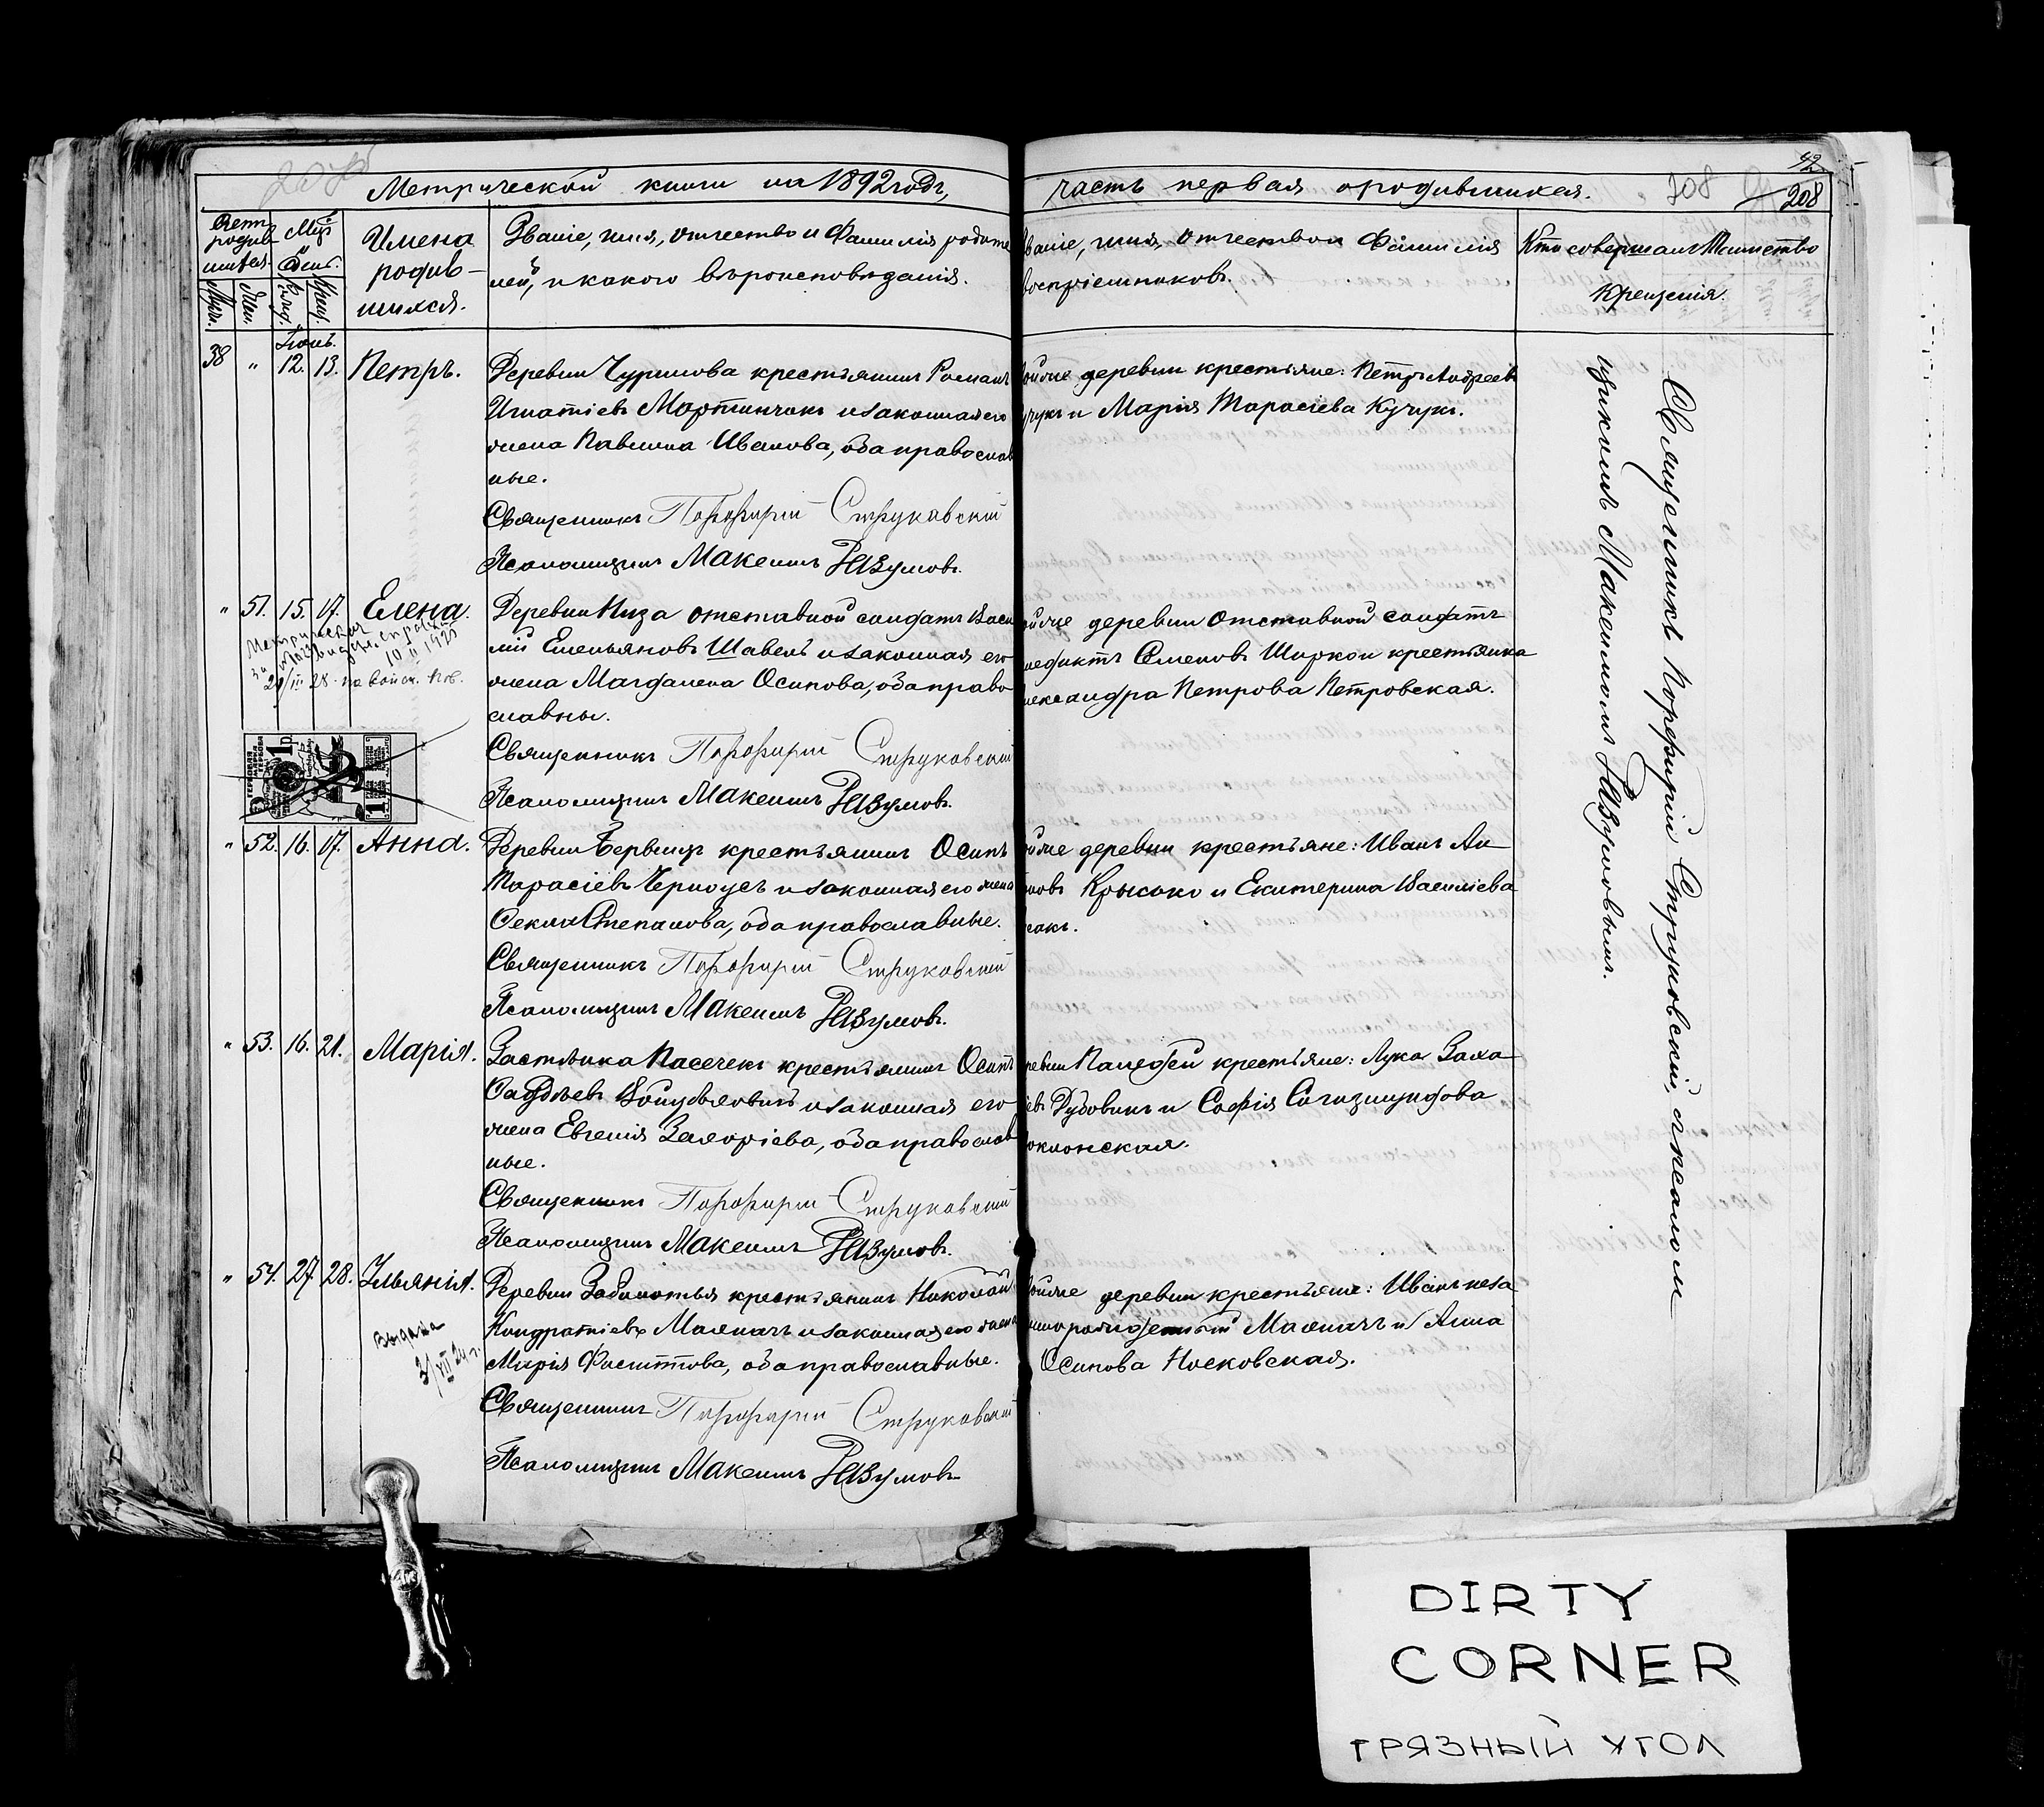 42
208
208
Метрической книги на 1892 годъ,
часть первая о родившихся.
Счетъ родив-
шихся.
Мѣс.
и
день.
Муж.
Жен.
Рожд.
Крещ.
Имена
родив-
шихся.
Званіе, имя, отчество и фамилія родите
лей, и какого вѣроисповѣданія.
Званіе, имя, отчество и фамилія
воспріемниковъ.
Кто совершалъ Таинство
Крещенія.
38 " 12. 13. Петръ.
Деревни Чуримова крестьянинъ Романъ
Игнатіевъ Мартинчикъ и законная его
жена Павлина Иванова, оба православ
ные.
Священникъ Порфирій Струковскій
Псаломщикъ Максимъ Разумовъ.
деревни крестьяне: Петръ Андреевъ
и Марія Тарасіева Кучукъ.
Священникъ Порфирій Струковскій, съ псаломщ
щикомъ Максимомъ Разумовымъ.
" 51. 15. 17. Елена.
Метрическая
10 II 1925
Деревни Низа отставной солдатъ Васи
лій Емельяновъ Шавель и законная его
жена Магдалена Осипова, оба право
славны.
Священникъ Порфирій Струковскій
Псаломщикъ Максимъ Разумовъ.
деревни отставной солдатъ
Семеновъ Ширко и крестьянка
Петрова Петровская.
" 52. 16. 17. Анна.
Деревни крестьянинъ Осипъ
Тарасіевъ Черноусъ и законная его жена
Ѳекла Степанова, оба православные.
Священникъ Порфирій Струковскій
Псаломщикъ Максимъ Разумовъ.
деревни крестьяне: Иванъ Ан
Крысько и Екатерина Василіева
" 53. 16. 21. Марія.
Застѣнка Пасечекъ крестьянинъ Осипъ
Ѳаддѣевъ и законная его
жена Евгенія Захаріева, оба православ
ные.
Священникъ Порфирій Струковскій
Псаломщикъ Максимъ Разумовъ.
крестьяне: Лука Заха
Дубовикъ и Софія Сигизмундова
" 54. 27 28. Ульянія.
Выдана
3/XII 24 г.
Деревни Заболотья крестьянинъ Николай
Кондратіевъ Маляначъ и законная его жена
Марія Филиппова, оба православные.
Священникъ Порфирій Струковскій
Псаломщикъ Максимъ Разумовъ
деревни крестьяне: Иванъ неза
Маляначъ и Анна
Осипова Носковская.
DIRTY
CORNER
ГРЯЗНЫЙ УГОЛ